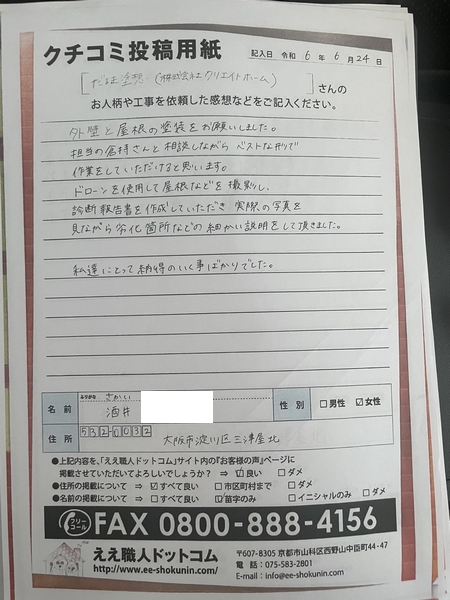 クチコミ投稿用紙
記入日 令和 6 年 6 月 24 日
[だるま塗想 (株式会社クリエイトホーム) ] さんの
お人柄や工事を依頼した感想などをご記入ください。
外壁と屋根の塗装をお願いしました。
担当の倉持さんと相談しながら ベストな形で
作業をしていただけると思います。
ドローンを使用して屋根などを撮影し、
診断報告書を作成していただき 実際の写真を
見ながら劣化箇所などの細かい説明をして頂きました。
私達にとって納得のいく事ばかりでした。
ふりがな さかい
名前 酒井
性別 □男性 ☑女性
532-0032
住所 大阪市淀川区三津屋北
●上記内容を、「ええ職人ドットコム」サイト内の『お客様の声』ページに
掲載させていただいてよろしいでしょうか? ⇒ ☑良い □ダメ
●住所の掲載について ⇒ ☑すべて良い □市区町村まで □ダメ
●名前の掲載について ⇒ □すべて良い ☑苗字のみ □イニシャルのみ □ダメ
フリーコール FAX 0800-888-4156
ええ職人ドットコム
http://www.ee-shokunin.com/
〒607-8305 京都市山科区西野山中臣町44-47
電 話:075-583-2801
E-mail:info@ee-shokunin.com